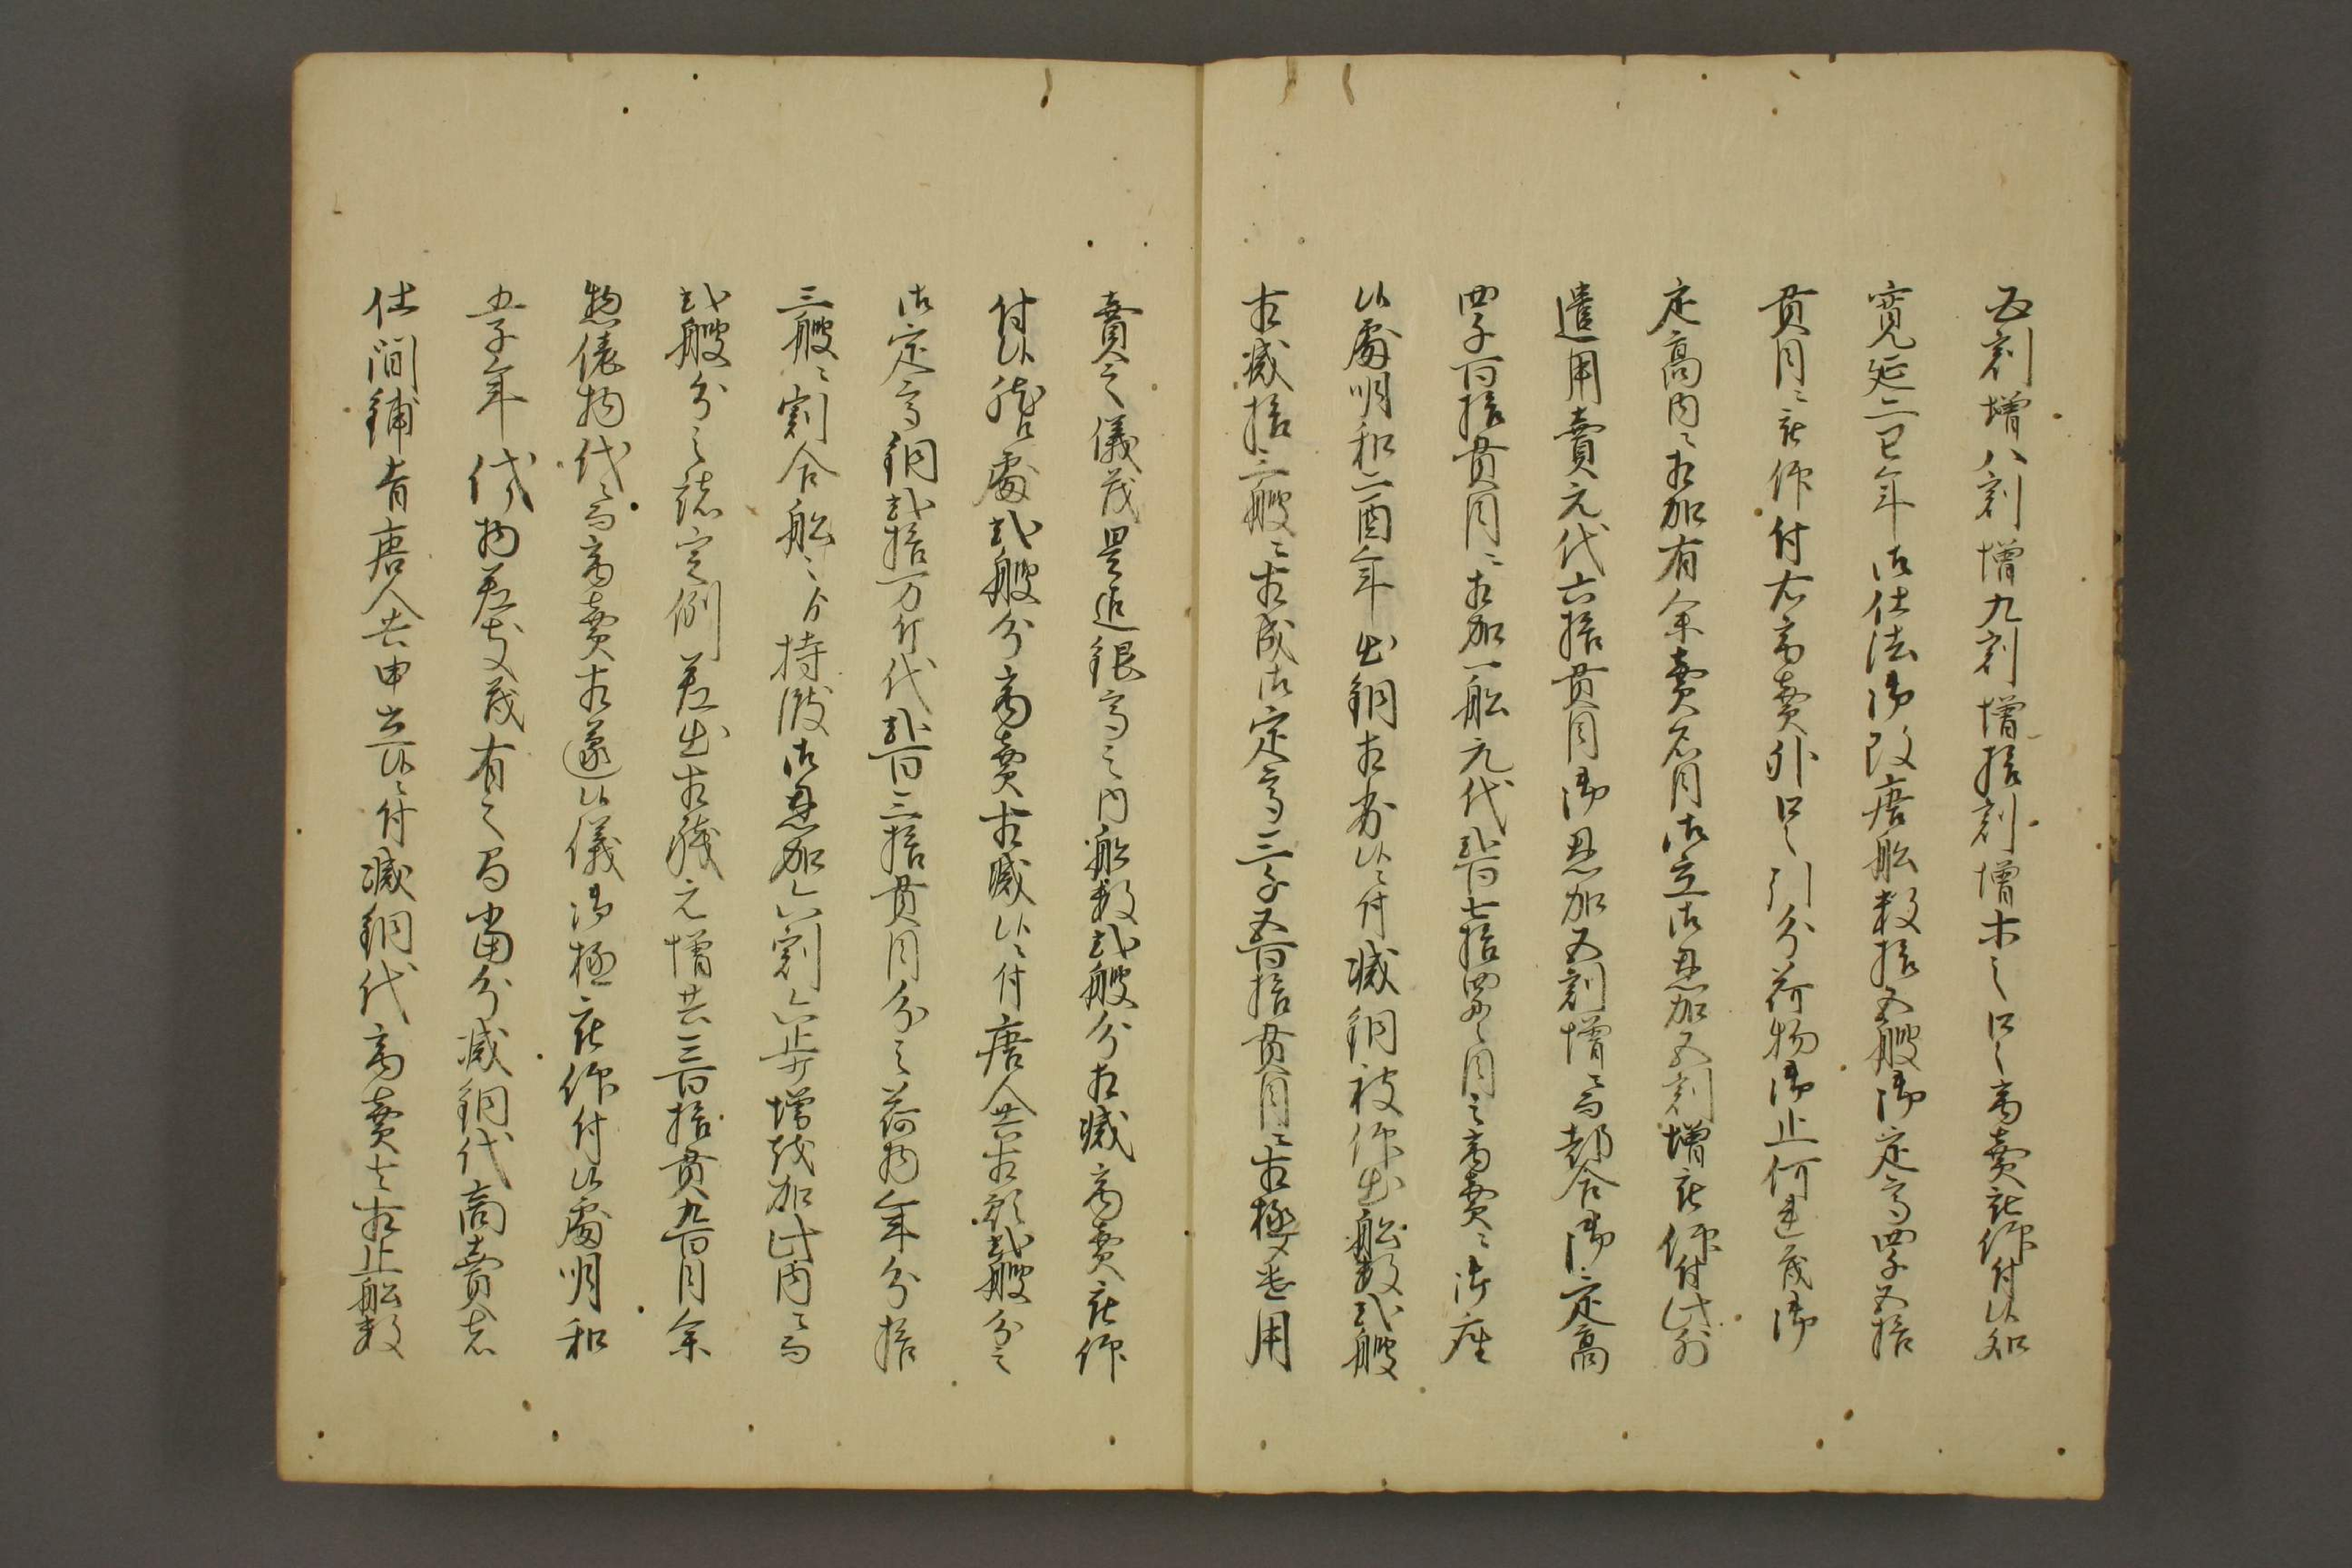 五割増八割増九割増拾割増木之口々商賣被仰付候知
寛延二巳年御仕法御改唐船数拾五艘御定高四千五拾
貫目ニ被仰付右商賣外口々引分荷物御止何連茂御
定高内ニ相加有余賣名目御立御恩加五割増被仰付此外
遣用賣元代六拾貫目御恩加五割増ニ而都合御定高
四千百拾貫目ニ相加一船元代弐百七拾四貫目之商賣ニ御座
候處明和二酉年出銅相劣候ニ付減銅被仰出船数弐艘
相減拾三艘ニ相成御定高三千五百拾貫目ニ相極又遣用
賣之儀茂是迄銀高之内船数弐艘分相減商賣被仰
付候然處弐艘分商賣相減候ニ付唐人共相願弐艘分之
御定高銅弐拾万斤代弐百三拾貫目分之荷物年分拾
三艘ニ割合船々より持渡御恩加六割六歩増を加此内ニ而
弐艘分之諸定例差出相残元増共三百拾貫九百目余
惣俵物代ニ而商賣相遂候儀御極被仰付候處明和
五子年代物差支茂有之当分減銅代商賣者
仕間鋪旨唐人共申立候ニ付減銅代商賣者相止船数